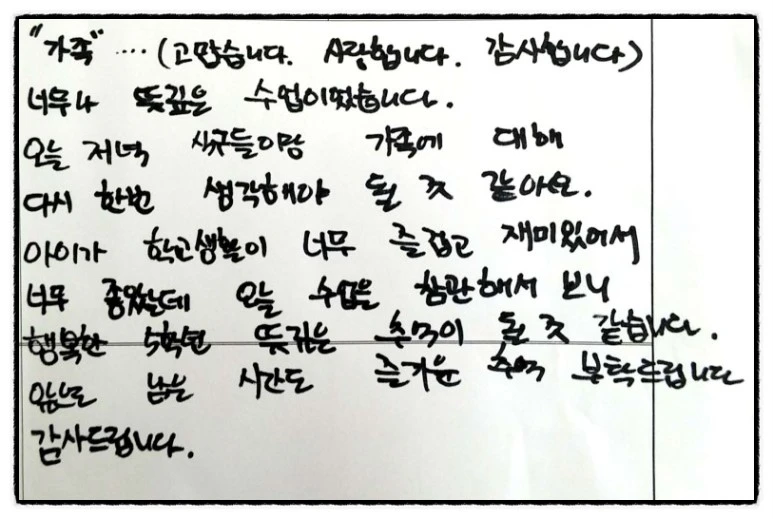 "가족" .... (고맙습니다. 사랑합니다. 감사합니다)
너무나 뜻깊은 수업이였습니다.
오늘 저녁 식구들이랑 가족에 대해
다시 한번 생각해야 될 것 같아요.
아이가 학교생활이 너무 즐겁고 재미있어서
너무 좋았는데 오늘 수업을 참관해서 보니
행복한 5학년 뜻깊은 추억이 될 것 같습니다.
앞으로도 남은 시간도 즐거운 추억 부탁드립니다
감사드립니다.